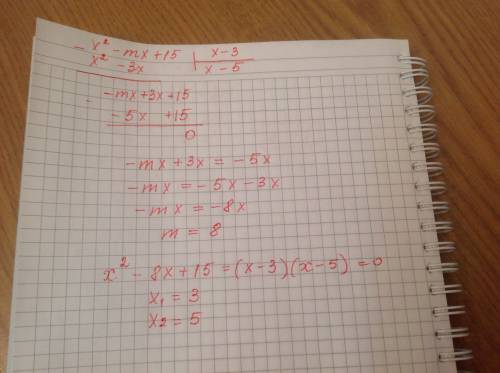 - x² - mx + 15 | x - 3
x² - 3x | x - 5
- - mx + 3x + 15
- 5x + 15
0
- mx + 3x = - 5x
- mx = - 5x - 3x
- mx = - 8x
m = 8
x² - 8x + 15 = (x - 3)(x - 5) = 0
x₁ = 3
x₂ = 5